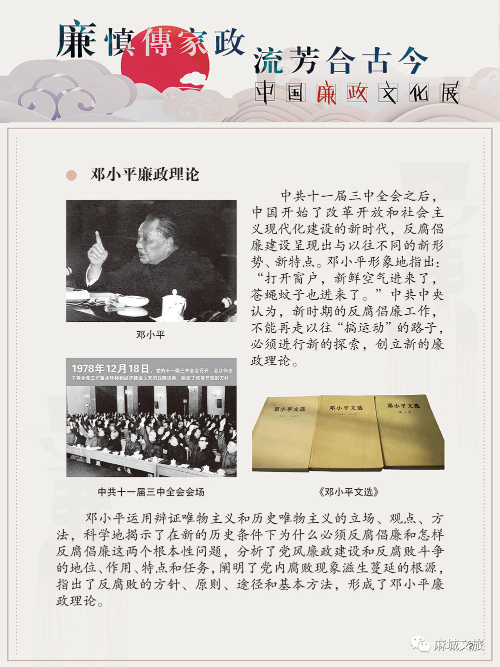 廉慎傳家政
流芳合古今
中国廉政文化展
邓小平廉政理论
中共十一届三中全会之后，
中国开始了改革开放和社会主
义现代化建设的新时代，反腐倡
廉建设呈现出与以往不同的新形
势、新特点。邓小平形象地指出：
“打开窗户，新鲜空气进来了，
苍蝇蚊子也进来了。”中共中央
认为，新时期的反腐倡廉工作，
不能再走以往“搞运动”的路子，
必须进行新的探索，创立新的廉
政理论。
邓小平
1978年12月18日，党的十一届三中全会召开，会议作出
中共十一届三中全会会场
邓小平文选
邓小平文选
邓小平文选
《邓小平文选》
邓小平运用辩证唯物主义和历史唯物主义的立场、观点、方
法，科学地揭示了在新的历史条件下为什么必须反腐倡廉和怎样
反腐倡廉这两个根本性问题，分析了党风廉政建设和反腐败斗争
的地位、作用、特点和任务，阐明了党内腐败现象滋生蔓延的根源，
指出了反腐败的方针、原则、途径和基本方法，形成了邓小平廉
政理论。
麻城文旅